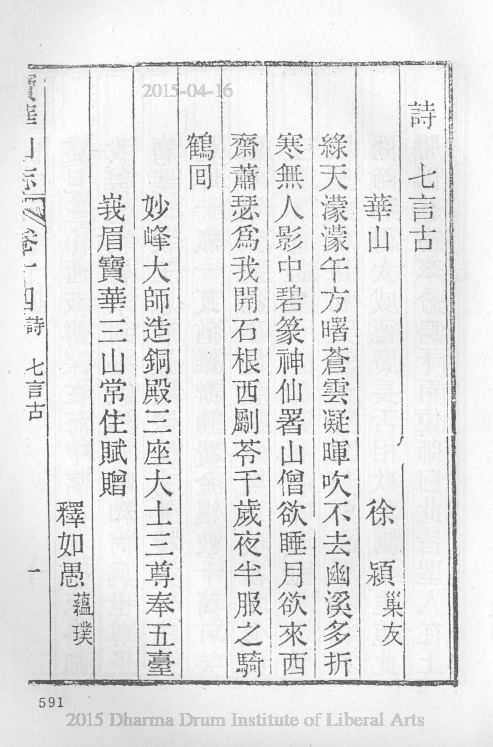 2015-04-16
詩　七言古
華山　徐　穎巢友
綠天濛濛午方曙蒼雲凝暉吹不去幽溪多折
寒無人影中碧篆神仙署山僧欲睡月欲來西
齋蕭瑟爲我開石根西劚苓千歲夜半服之騎
鶴回
妙峰大師造銅殿三座大士三尊奉五臺
峩眉寶華三山常住賦贈
釋如愚蘊璞
寶華山志　卷十四　詩　七言古　一
591
2015 Dharma Drum Institute of Liberal Arts